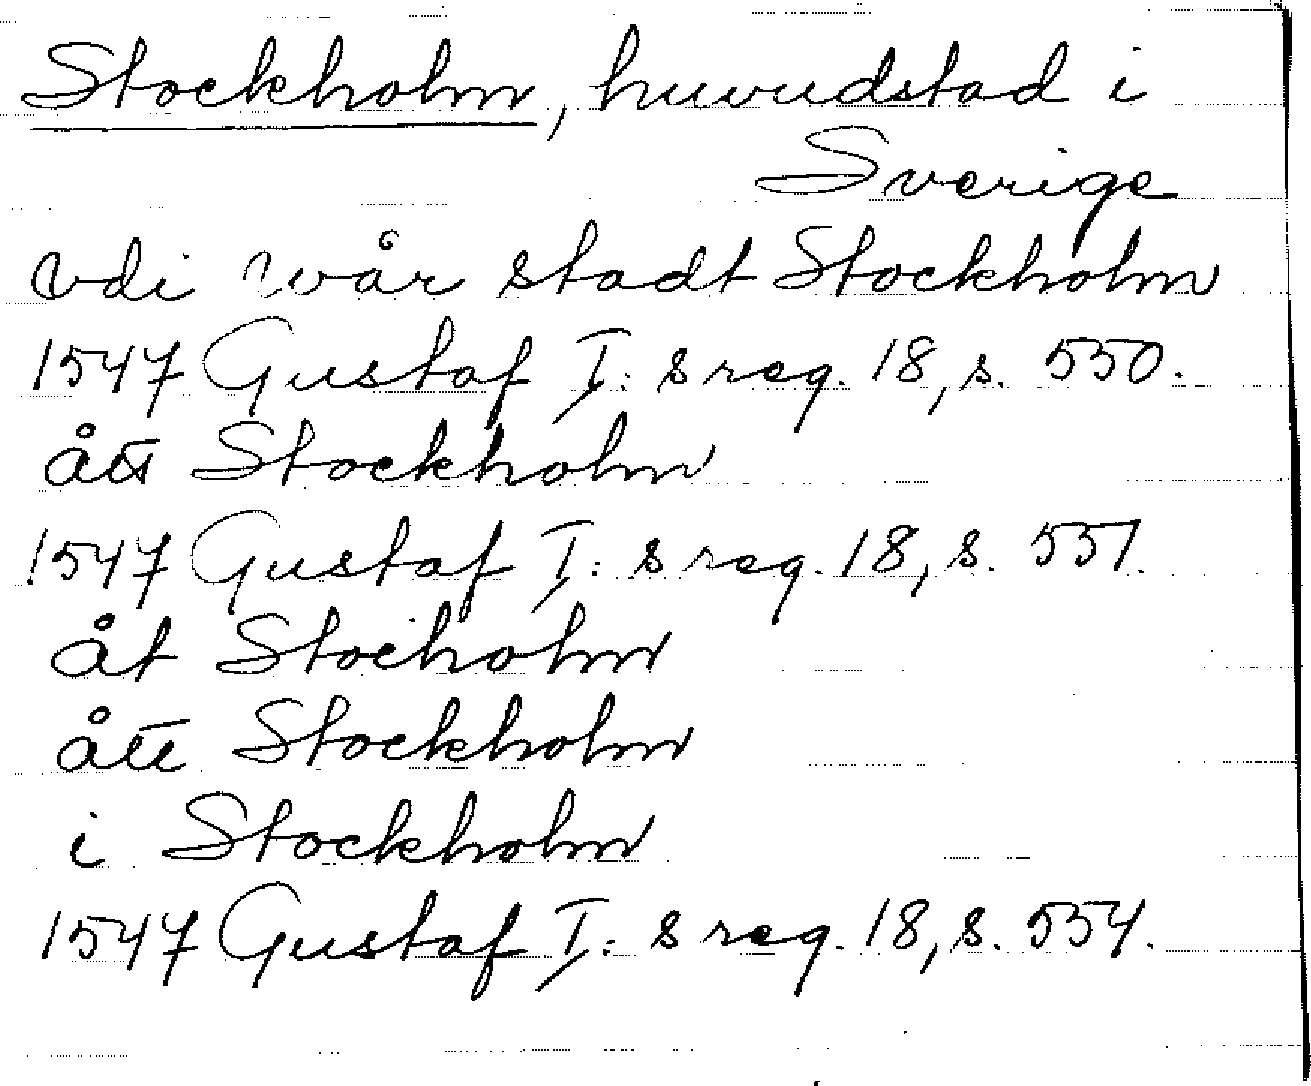 Stockholm, huvudstad i
Sverige
vdi wår stadt Stockholm
1547 Gustaf I: s reg. 18, s. 550.
ått Stockholm
1547 Gustaf I: s reg. 18, s. 551.
åt Stocholm
ått Stockholm
i Stockholm
1547 Gustaf I: s reg. 18, s. 554.